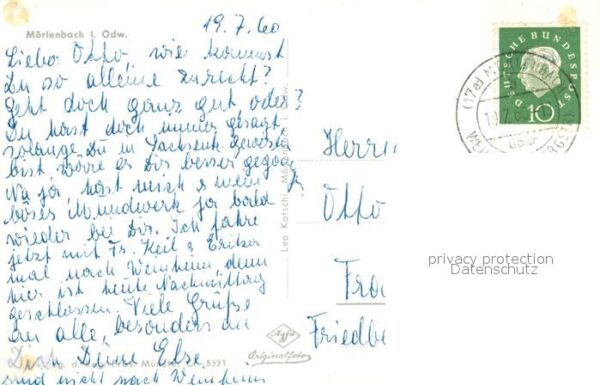 19.7.60
Mörlenbach i. Odw.
Lieber Otto, wie kommst
Du so alleine zurecht?
Geht doch ganz gut oder?
Du hast doch immer gesagt
solange Du in Sachsenh. gewesen
bist, wäre es Dir besser gegang
Na ja, hast mich & mein
böses Mundwerk ja bald
wieder bei Dir. Ich fahre
jetzt mit Fr. Keil &
mal nach Weinheim, denn
hier ist heute Nachmittag
geschlossen. Viele Grüße
an alle, besonders an
Dich Deine Else
sind nicht nach Weinheim
Leo Katschi, Mörlenbach i. Odw.
5331
Agfa
Originalfoto
DEUTSCHE BUNDESPOST
10
(17a)
Herrn
Otto
Fra
Friedbe
privacy protection
Datenschutz